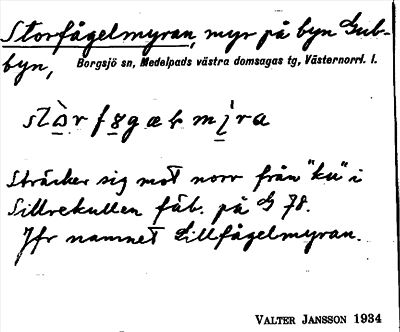 Storfågelmyran, myr på byn Gub-
byn,
Borgsjö sn, Medelpads västra domsagas tg, Västernorrl. l.
Sträcker sig mot norr från "ku" i
Sillrekullen fäb. på G 78.
Jfr namnet Lillfågelmyran.
VALTER JANSSON 1934